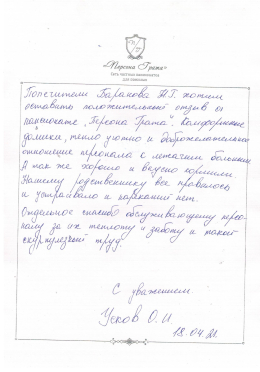 «Персона Грата»
Сеть частных пансионатов
для пожилых
Попечители Баранова М.Г. хотим
оставить положительный отзыв о
пансионате "Персона Грата". Комфортные
домики, тепло уютно и доброжелательное
отношение персонала к лежачим больным.
А так же хорошо и вкусно кормили.
Нашему родственнику все нравилось
и устраивало и нареканий нет.
Отдельное спасибо обслуживающему персо-
налу за их теплоту и заботу и такой
скурпулезный труд.
С уважением
Усков О.И.
18.04.21.